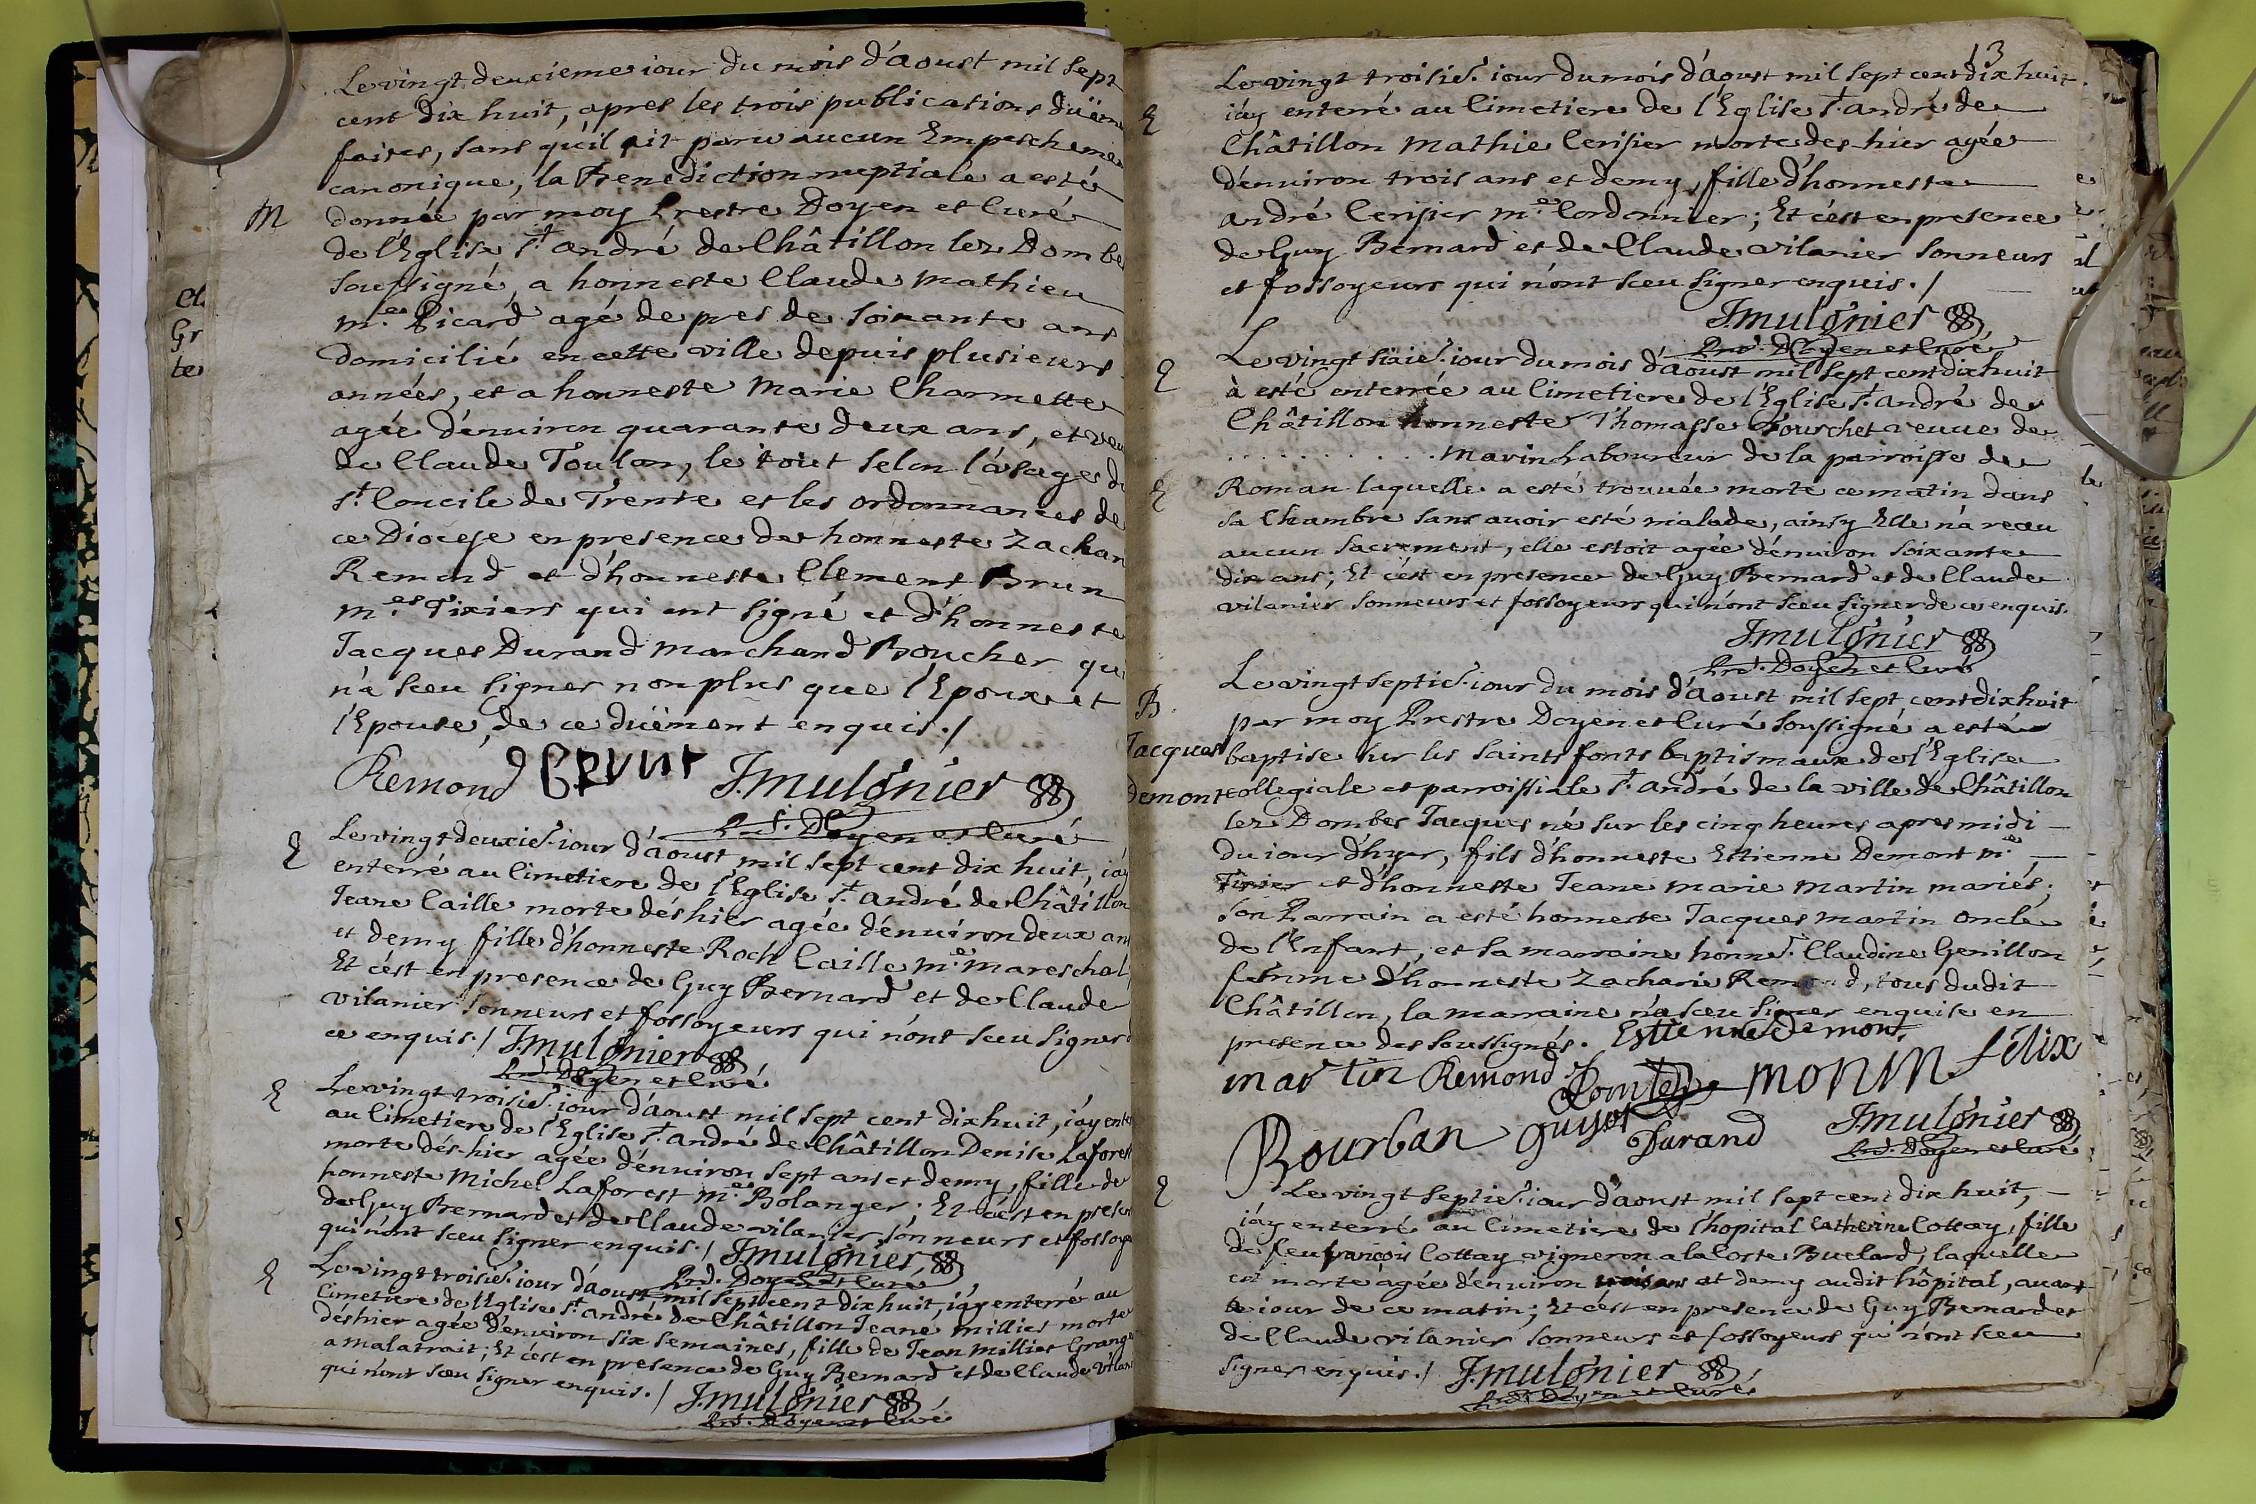 Le vingt deuxieme iour du mois d'aoust mil sept
cent dix huit, apres les trois publications duëm
faites, sans qu'il ait paru aucun Empescheme
canonique, la Benediction nuptiale a esté
M donnée par moy Prestre Doyen et Curé
de l'Eglise St. André de Châtillon lez Dombe
soussigné, a honneste Claude Mathieu
me. Picard agé de pres de soixante ans
domicilié en cette ville depuis plusieurs
années, et a honneste Marie Charmette
agée d'enuiron quarante deux ans, et veu
de Claude Toulon, le tout selon l'usage d
St. Concile de Trente et les ordonnances de
ce Diocese en presence de honneste Zachar
Remond et d'honneste Clement Brun
mes. Tixiers qui ont signé et d'honneste
Jacques Durand Marchand Boucher qui
n'a sceu signer non plus que l'Epoux et
l'Epouse, de ce duëment enquis./
Remond C Brun J. mulonier
Prd. Doyen et Curé
E Le vingt deuxies. iour d'aoust mil sept cent dix huit, i'ay
enterré au Cimetiere de l'Eglise St. André de Châtillon
Jeane Caille morte dés hier agée d'enuiron deux an
et demy fille d'honneste Roch Caille me. mareschal
Et c'est en presence de Guy Bernard et de Claude
vilanier sonneurs et fossoyeurs qui n'ont sceu signer
ce enquis./ J. mulonier
Prd. Doyen et Curé
E Le vingt troisies. iour d'aoust mil sept cent dix huit, i'ay ente
au Cimetiere de l'Eglise St. André de Châtillon Denise Lafores
morte dés hier agée d'enuiron sept ans et demy, fille de
honneste Michel Laforest me. Bolanger; Et c'est en prese
de Guy Bernard et de Claude vilanier sonneurs et fossoye
qui n'ont sceu signer enquis./ J. mulonier
Prd. Doyen et Curé
E Le vingt troisies. iour d'aoust mil sept cent dix huit, i'ay enterré au
Cimetiere de l'Eglise St. André de Châtillon Jeane Millier morte
dés hier agée d'enuiron six semaines, fille de Jean Millier Grang
a Malatrait; Et c'est en presence de Guy Bernard et de Claude vilan
qui n'ont sceu signer enquis./ J. mulonier
Prd. Doyen et Curé
13
Le vingt troisies. iour du mois d'aoust mil sept cent dix huit
E i'ay enterré au Cimetiere de l'Eglise St. André de
Châtillon Mathie Cerisier morte des hier agée
d'enuiron trois ans et demy, fille d'honneste
André Cerisier me. Cordonnier; Et c'est en presence
de Guy Bernard et de Claude vilanier sonneurs
et fossoyeurs qui n'ont sceu signer enquis./
J. mulonier
Prd. Doyen et Curé
E Le vingt sixies. iour du mois d'aoust mil sept cent dix huit
à esté enterrée au Cimetiere de l'Eglise St. André de
Châtillon honneste Thomasse veuue de
. . . . . . . . . . . Mavin Laboureur de la parroisse de
E Roman laquelle a esté trouuée morte ce matin dans
sa Chambre sans auoir esté malade, ainsy Elle n'a receu
aucun sacrement, elle estoit agée d'enuiron soixante
dix ans; Et c'est en presence de Guy Bernard et de Claude
vilanier sonneurs et fossoyeurs qui n'ont sceu signer de ce enquis.
J. mulonier
Prd. Doyen et Curé
Le vingt septies. iour du mois d'aoust mil sept cent dix huit
B. par moy Prestre Doyen et Curé soussigné a esté
Jacques baptise sur les saints fonts baptismaux de l'Eglise
Demont collegiale et parroissiale St. André de la ville de Châtillon
lez Dombes Jacques né sur les cinq heures apres midi
du iour d'hyer, fils d'honneste Estienne Demont me.
Tixier et d'honneste Jeane Marie Martin mariés;
son Parrain a esté honneste Jacques Martin Oncle
de l'Enfant, et sa marraine honne. Claudine Genillon
femme d'honneste Zacharie Remond, tous dudit
Châtillon, la marraine n'a sceu signer enquise en
presence des soussignés. Estienne Demont
martin Remond monin félix
Bourban guyot Durand J. mulonier
Prd. Doyen et Curé
E Le vingt septies. iour d'aoust mil sept cent dix huit,
i'ay enterré au Cimetiere de l'hopital Catherine Cottay, fille
de feu françois Cottay vigneron a la Coste Buelard, laquelle
est morte agée d'enuiron trois ans et demy audit hôpital, auant
le iour de ce matin; Et c'est en presence de Guy Bernard et
de Claude vilanier sonneurs et fossoyeurs qui n'ont sceu
signer enquis./ J. mulonier
Prd. Doyen et Curé